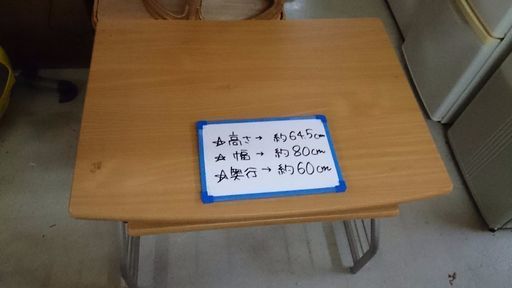 ☆高さ→約64.5cm
☆幅→約80cm
☆奥行→約60cm